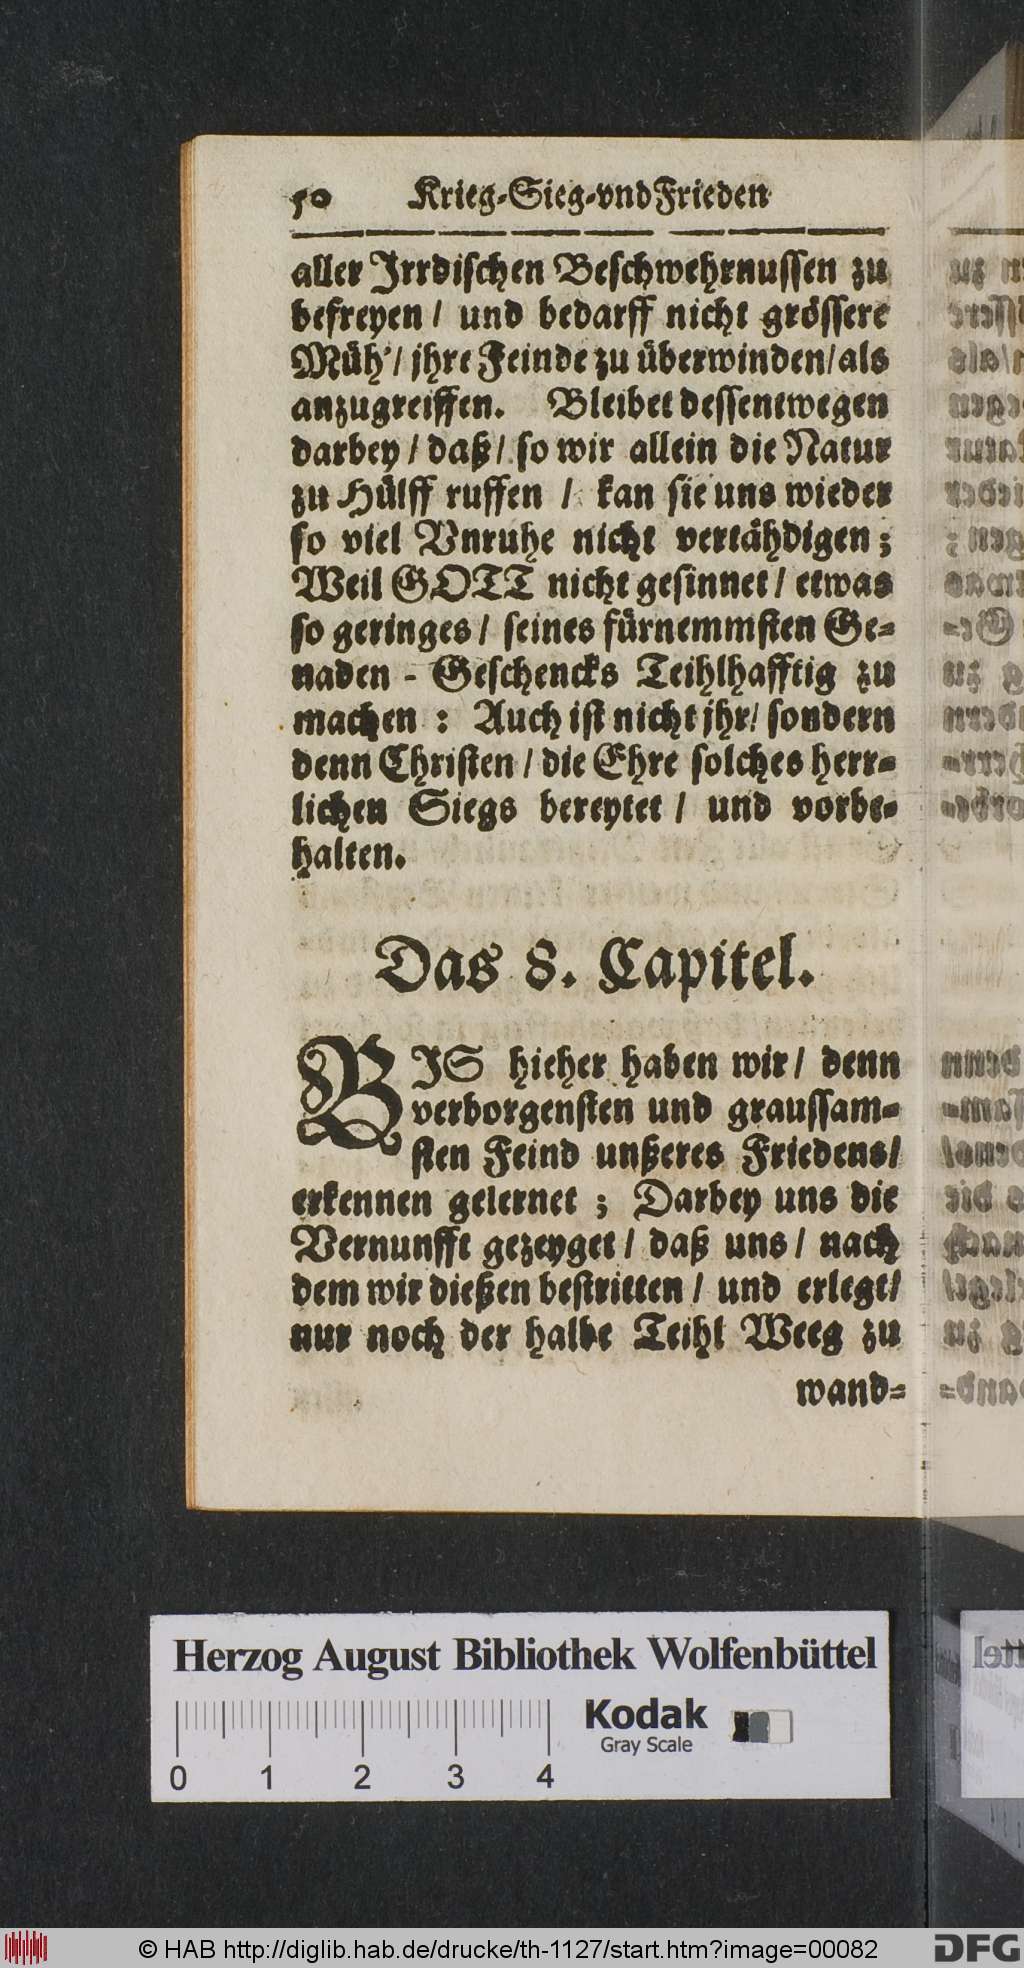 50 Krieg-Sieg-vnd Frieden
aller Irrdischen Beschwehrnussen zu
befreyen / und bedarff nicht grössere
Müh' / jhre Feinde zu überwinden / als
anzugreiffen. Bleibet dessentwegen
darbey / daß / so wir allein die Natur
zu Hülff ruffen / kan sie uns wieder
so viel Vnruhe nicht vertähdigen ;
Weil GOTT nicht gesinnet / etwas
so geringes / seines fürnemmsten Ge-
naden - Geschencks Teihlhafftig zu
machen : Auch ist nicht jhr / sondern
denn Christen / die Ehre solches herr-
lichen Siegs bereytet / und vorbe-
halten.
Das 8. Capitel.
BIS hieher haben wir / denn
verborgensten und graussam-
sten Feind unßeres Friedens /
erkennen gelernet ; Darbey uns die
Vernunfft gezeyget / daß uns / nach
dem wir dießen bestritten / und erlegt /
nur noch der halbe Teihl Weeg zu
wand-
Herzog August Bibliothek Wolfenbüttel
Kodak
Gray Scale
0 1 2 3 4
© HAB http://diglib.hab.de/drucke/th-1127/start.htm?image=00082
DFG